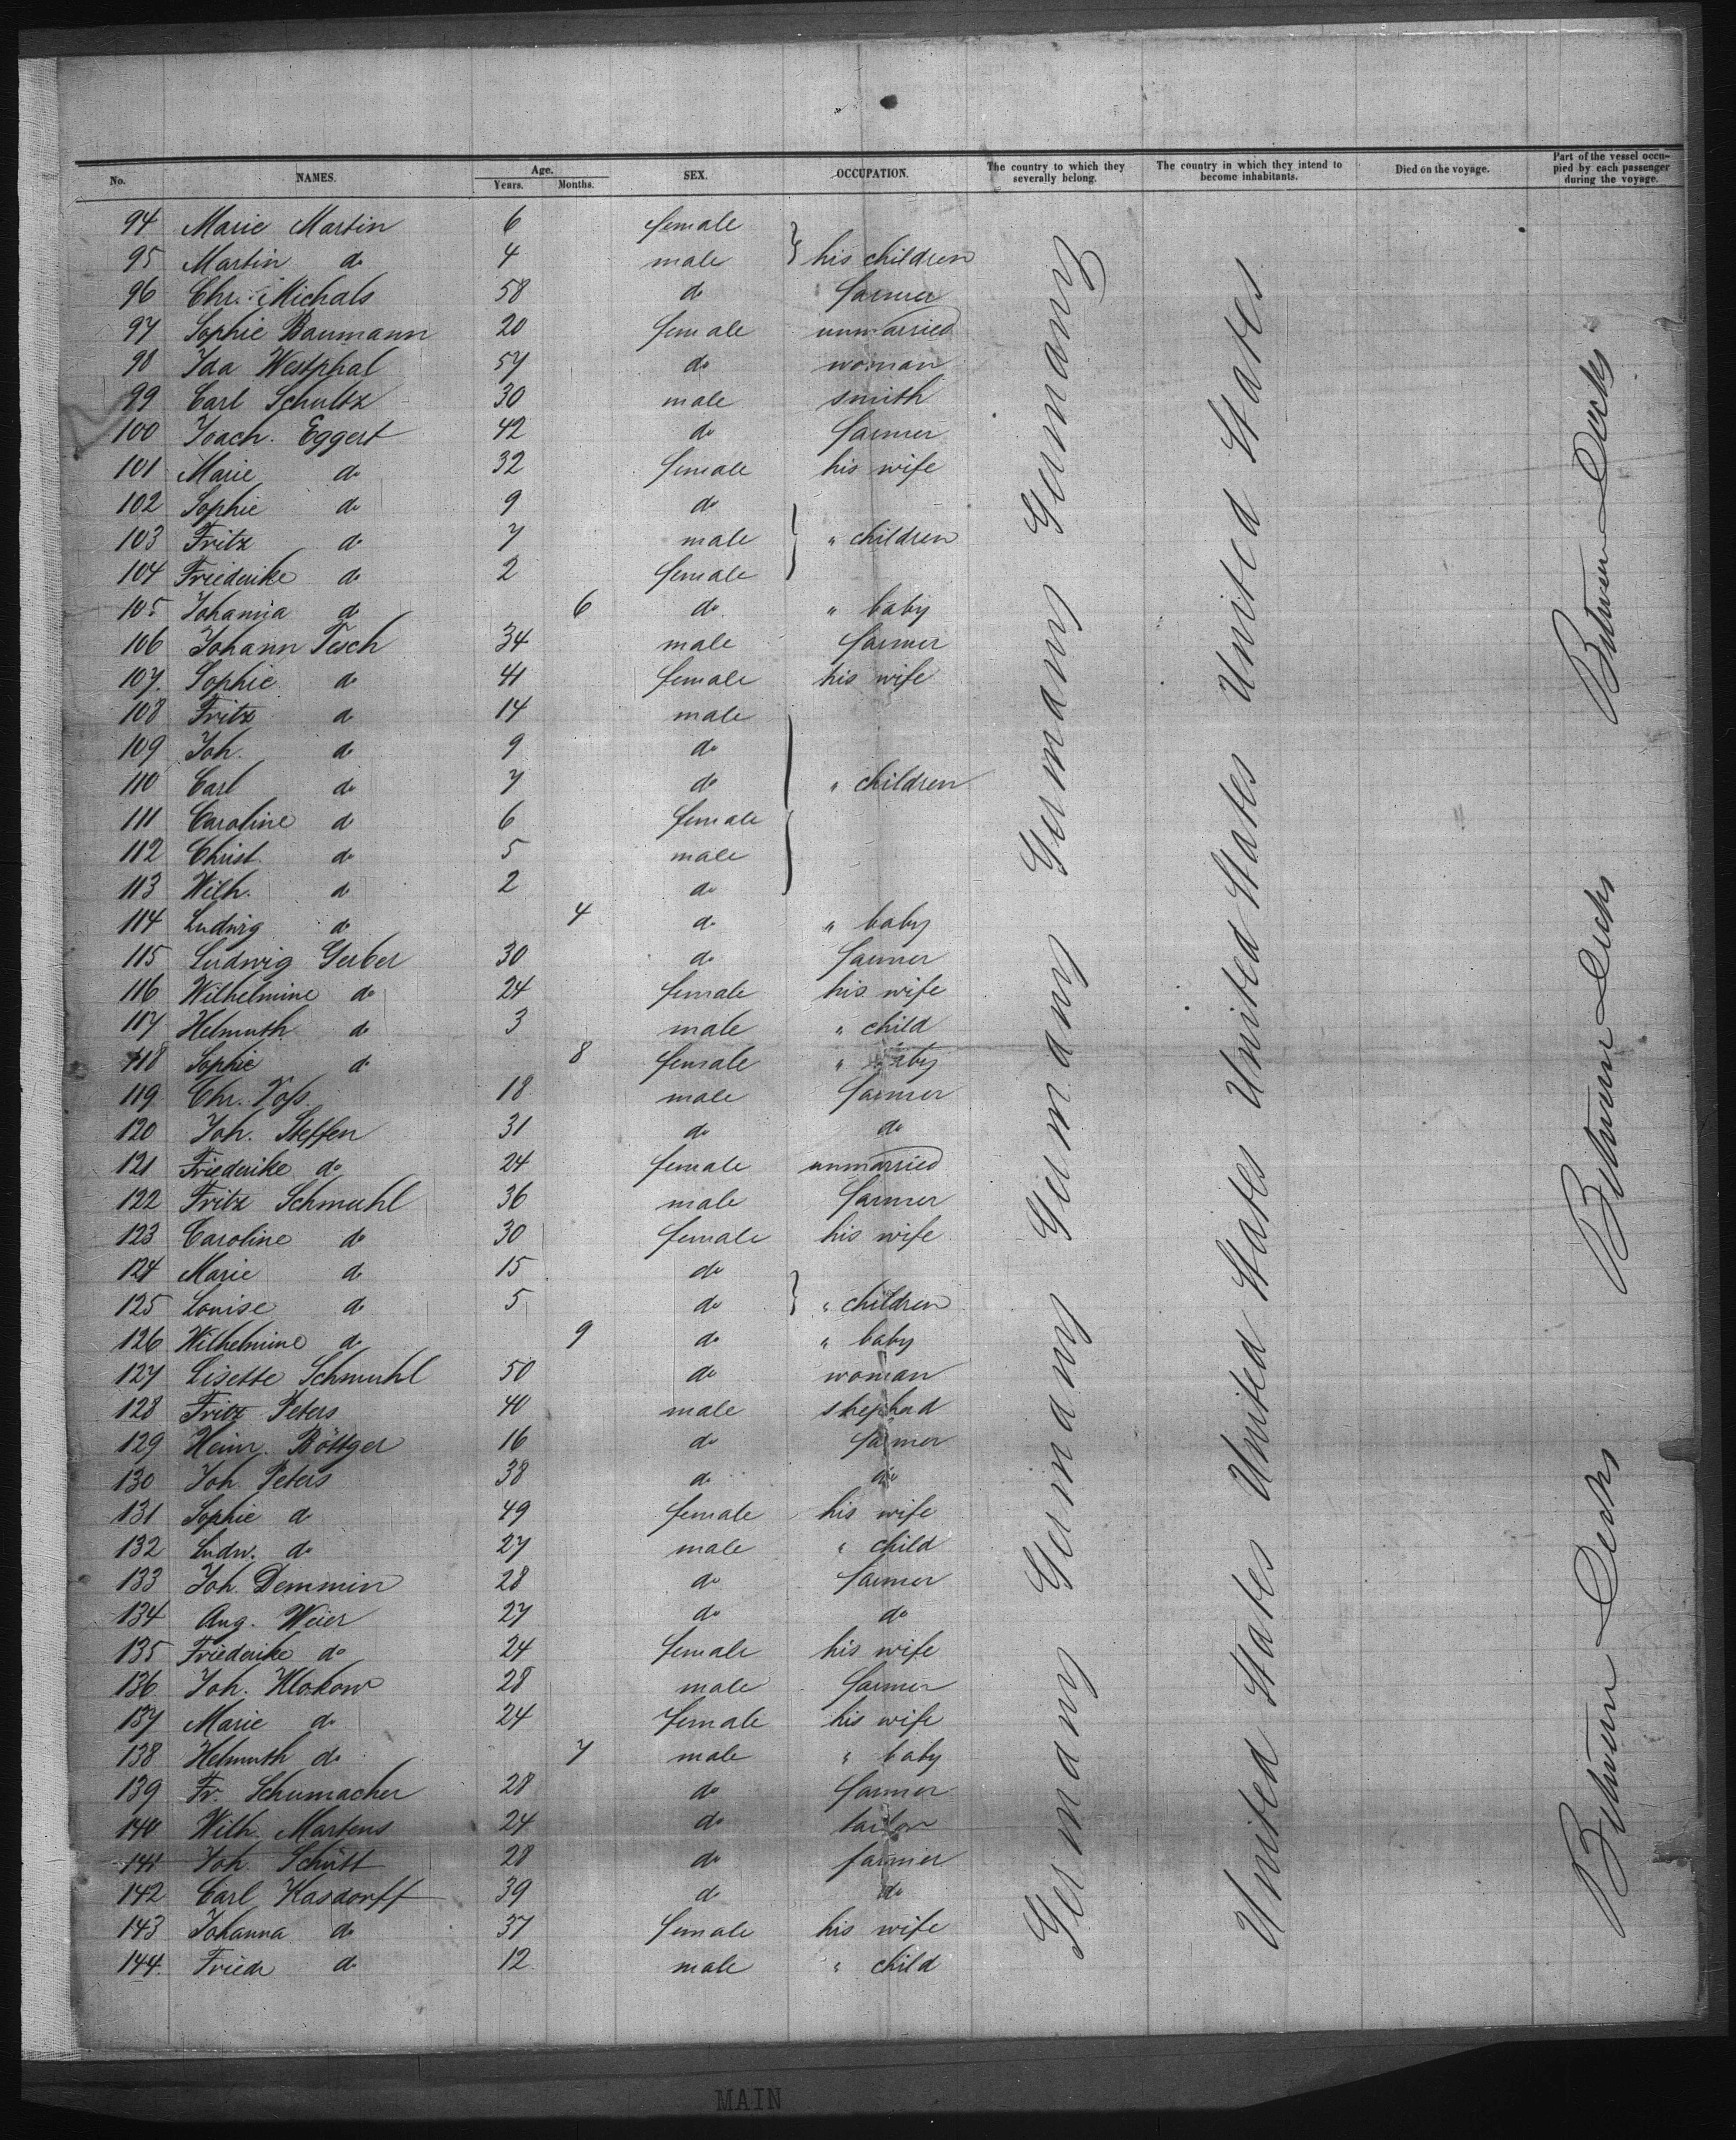 No. NAMES. Age. Years. Months. SEX. OCCUPATION. The country to which they severally belong. The country in which they intend to become inhabitants. Died on the voyage. Part of the vessel occupied by each passenger during the voyage.
94 Marie Martin 6 female
95 Martin do 4 male } his children
96 Chr. Michals 58 do farmer
97 Sophie Baumann 20 female unmarried
98 Ida Westphal 57 do woman
99 Carl Schultz 30 male smith
100 Joach. Eggert 42 do farmer
101 Marie do 32 female his wife
102 Sophie do 9 do
103 Fritz do 7 male } " children
104 Friederike do 2 female
105 Johanna do 6 do " baby
106 Johann Tesch 34 male farmer
107. Sophie do 41 female his wife
108 Fritz do 14 male
109 Joh. do 9 do
110 Carl do 7 do } " children
111 Caroline do 6 female
112 Christ. do 5 male
113 Wilh. do 2 do
114 Ludwig do 4 do " baby
115 Ludwig Gerber 30 do farmer
116 Wilhelmine do 24 female his wife
117 Helmuth do 3 male " child
118 Sophie do 8 female " baby
119 Chr. Voß 18 male farmer
120 Joh. Steffen 31 do do
121 Friederike do 24 female unmarried
122 Fritz Schmuhl 36 male farmer
123 Caroline do 30 female his wife
124 Marie do 15 do
125 Louise do 5 do } " children
126 Wilhelmine do 9 do " baby
127 Lisette Schmuhl 50 do woman
128 Fritz Peters 40 male shepherd
129 Heinr. Böttger 16 do farmer
130 Joh. Peters 38 do do
131 Sophie do 49 female his wife
132 Ludw. do 27 male " child
133 Joh. Demmin 28 do farmer
134 Aug. Weier 27 do do
135 Friederike do 24 female his wife
136 Joh. Klokow 28 male farmer
137 Marie do 24 female his wife
138 Helmuth do 7 male " baby
139 Fr. Schumacher 28 do farmer
140 Wilh. Martens 24 do tailor
141 Joh. Schütt 28 do farmer
142 Carl Kasdorff 39 do do
143 Johanna do 37 female his wife
144. Friedr do 12. male " child
Germany Germany Germany Germany Germany
United States United States United States United States United States
Between Decks Between Decks Between Decks
MAIN